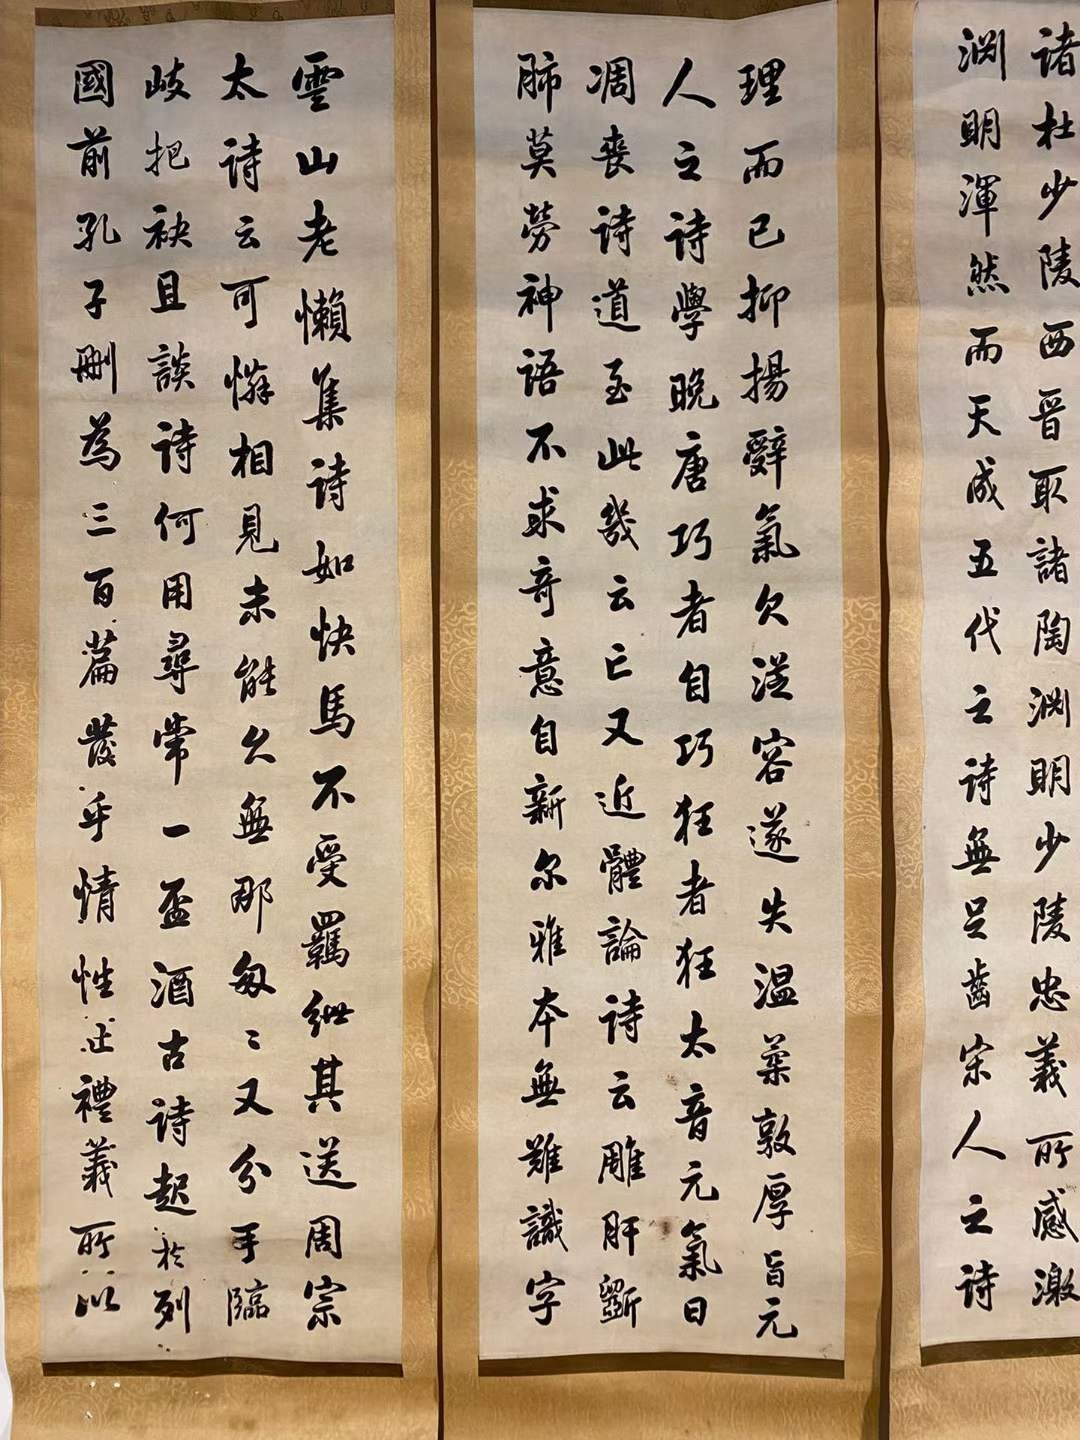 诸杜少陵西晋取諸陶渊明少陵忠義所感激
渊明渾然而天成五代之詩無足齒宋人之詩
理而已抑揚辭氣欠從容遂失温柔敦厚旨元
人之詩學晚唐巧者自巧狂者狂太音元氣日
凋喪詩道至此幾云亡又近體論詩云雕肝斲
肺莫勞神語不求奇意自新尔雅本無難識字
雲山老懶集詩如快馬不受羈紲其送周宗
太詩云可憐相見未能久無那匆〻又分手臨
歧把袂且談詩何用尋常一盃酒古詩起於列
國前孔子刪為三百篇發乎情性止禮義所以